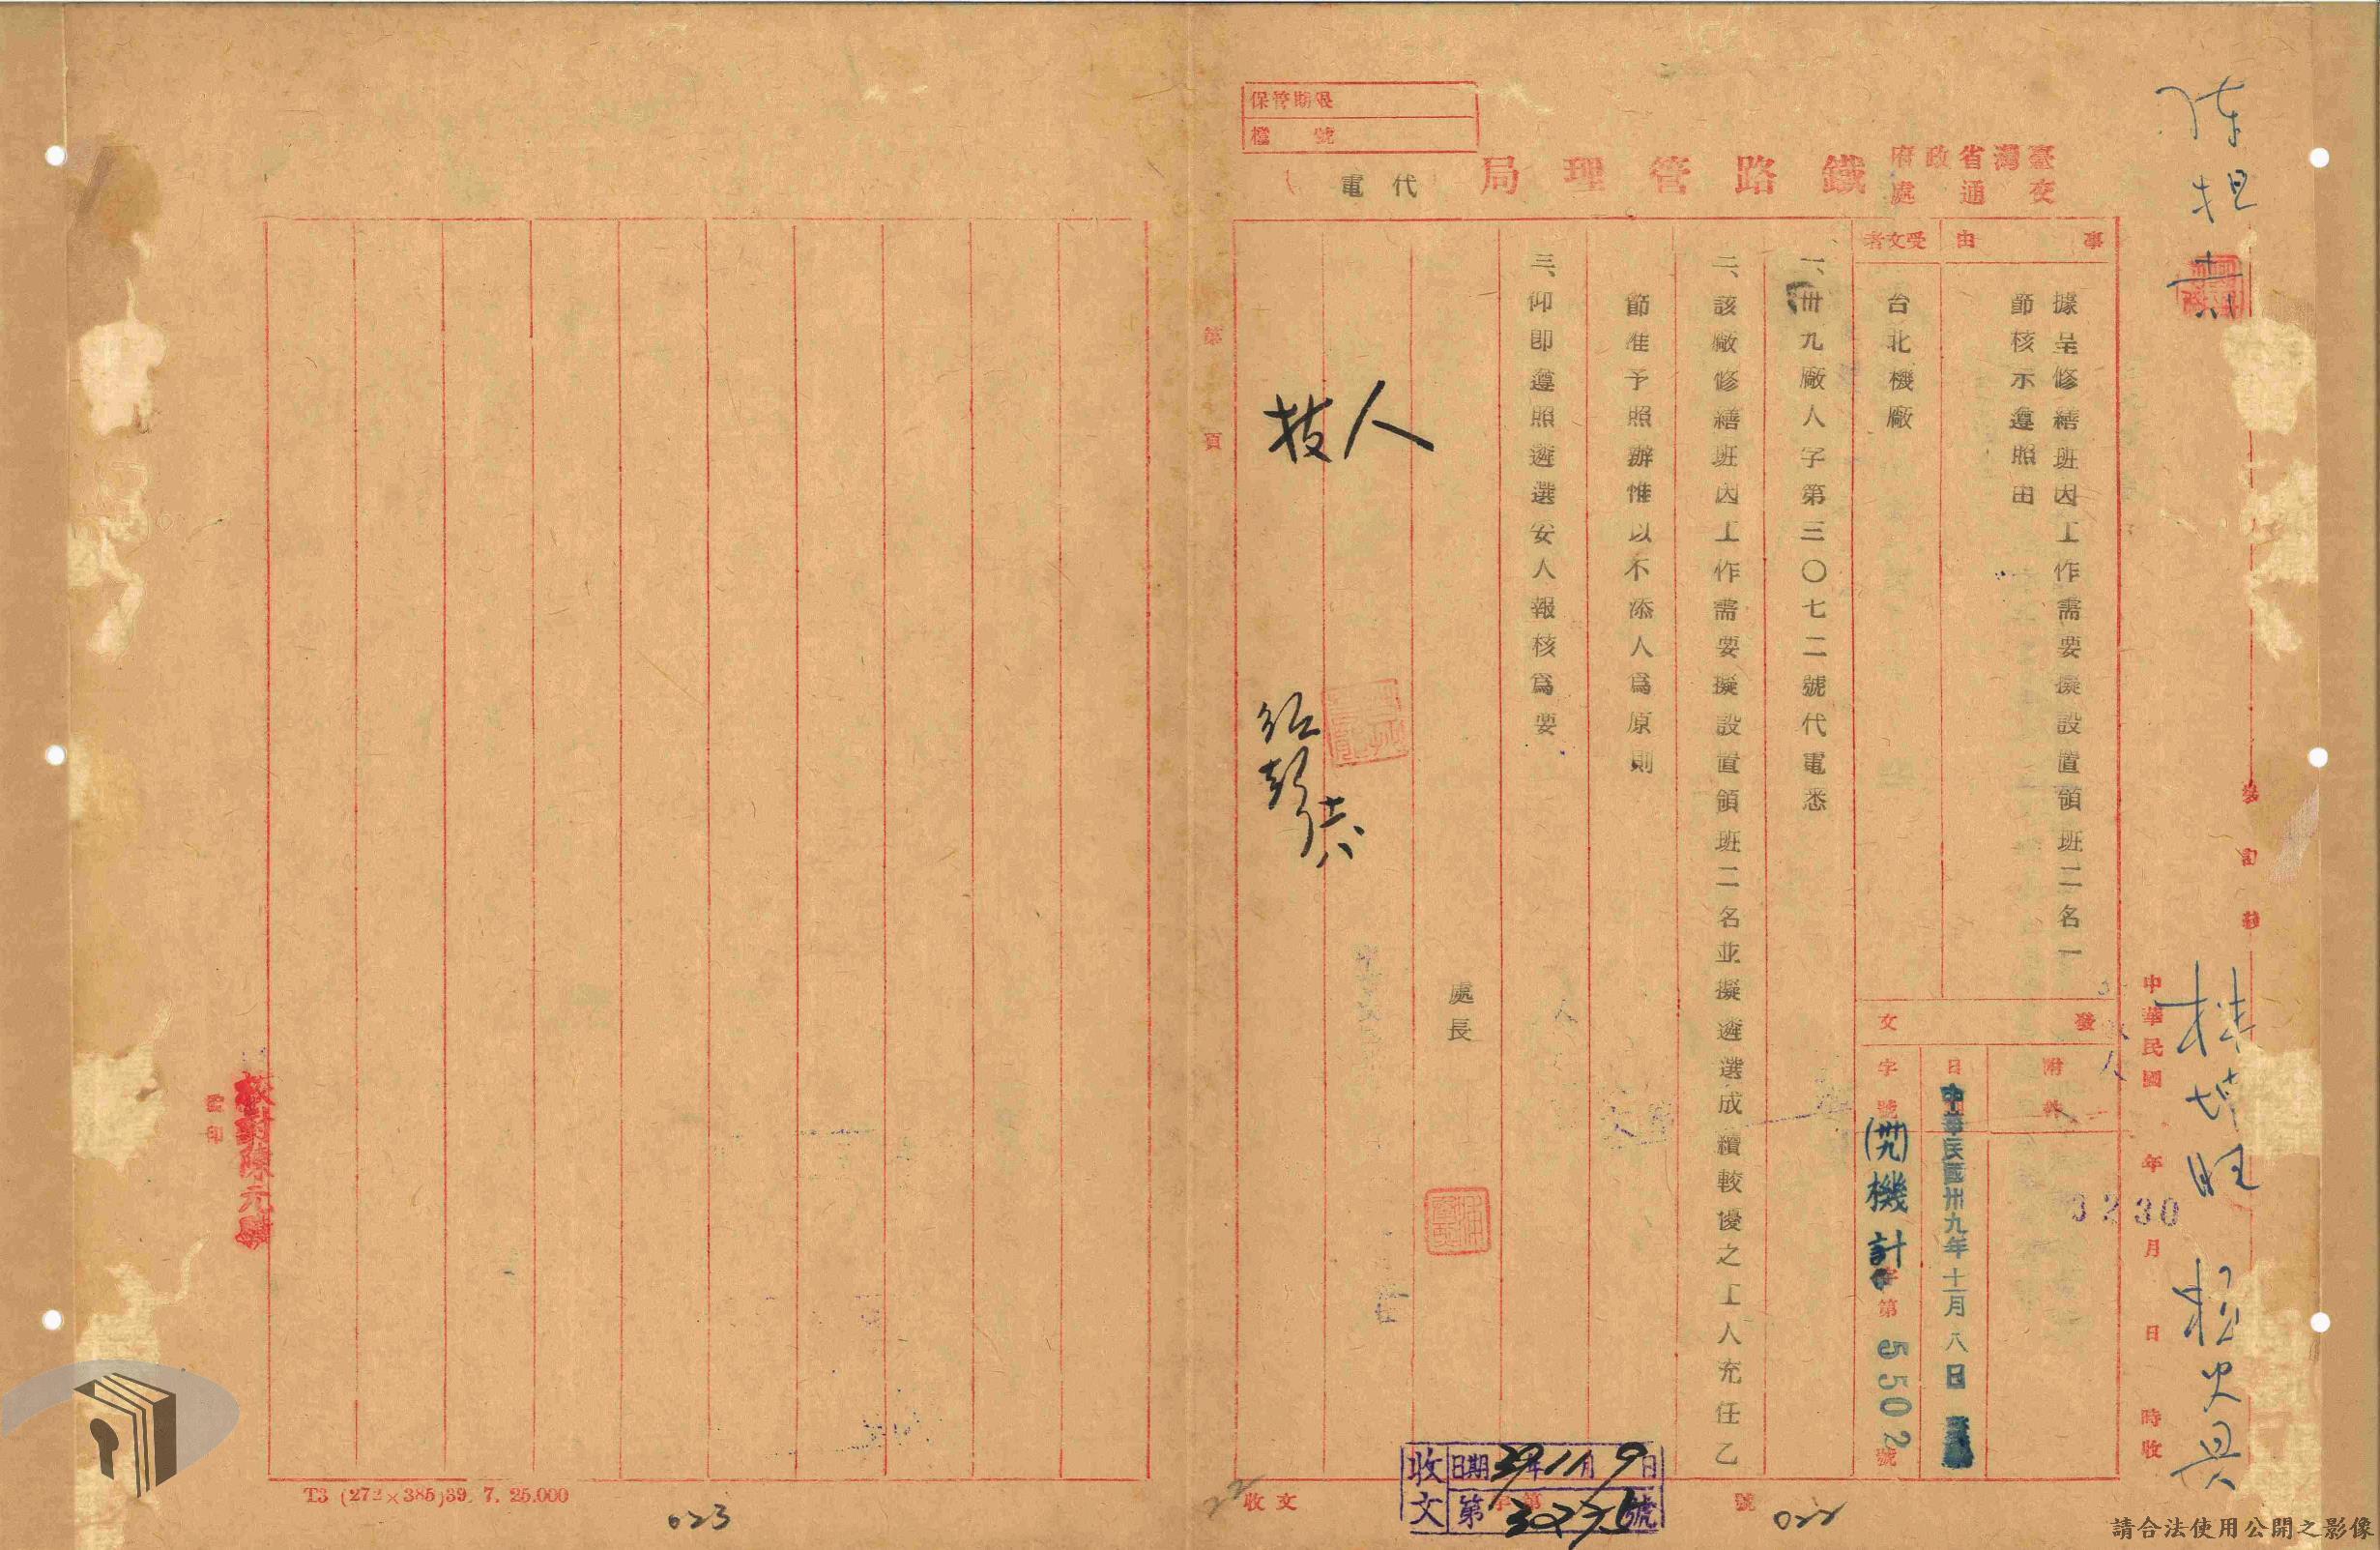 保管期限
檔號
臺灣省政府
交通處
鐵路管理局
代電
事由
據呈修繕班因工作需要擬設置領班二名一
節核示遵照由
受文者
台北機廠
發文
附件
日
中華民國卅九年十一月八日
字號
(卅九)機計字第5502號
一、卅九廠人字第三〇七二號代電悉
二、該廠修繕班因工作需要擬設置領班二名並擬遴選成績較優之工人充任乙
節准予照辦惟以不添人為原則
三、仰即遵照遴選妥人報核為要
處長
人
技
第 頁
中華民國 年 月 日 時收
3230
收文
日期39年11月9日
收文 字第 號
022
校對陳元
監印
T3 (272×385)39. 7. 25.000
023
請合法使用公開之影像